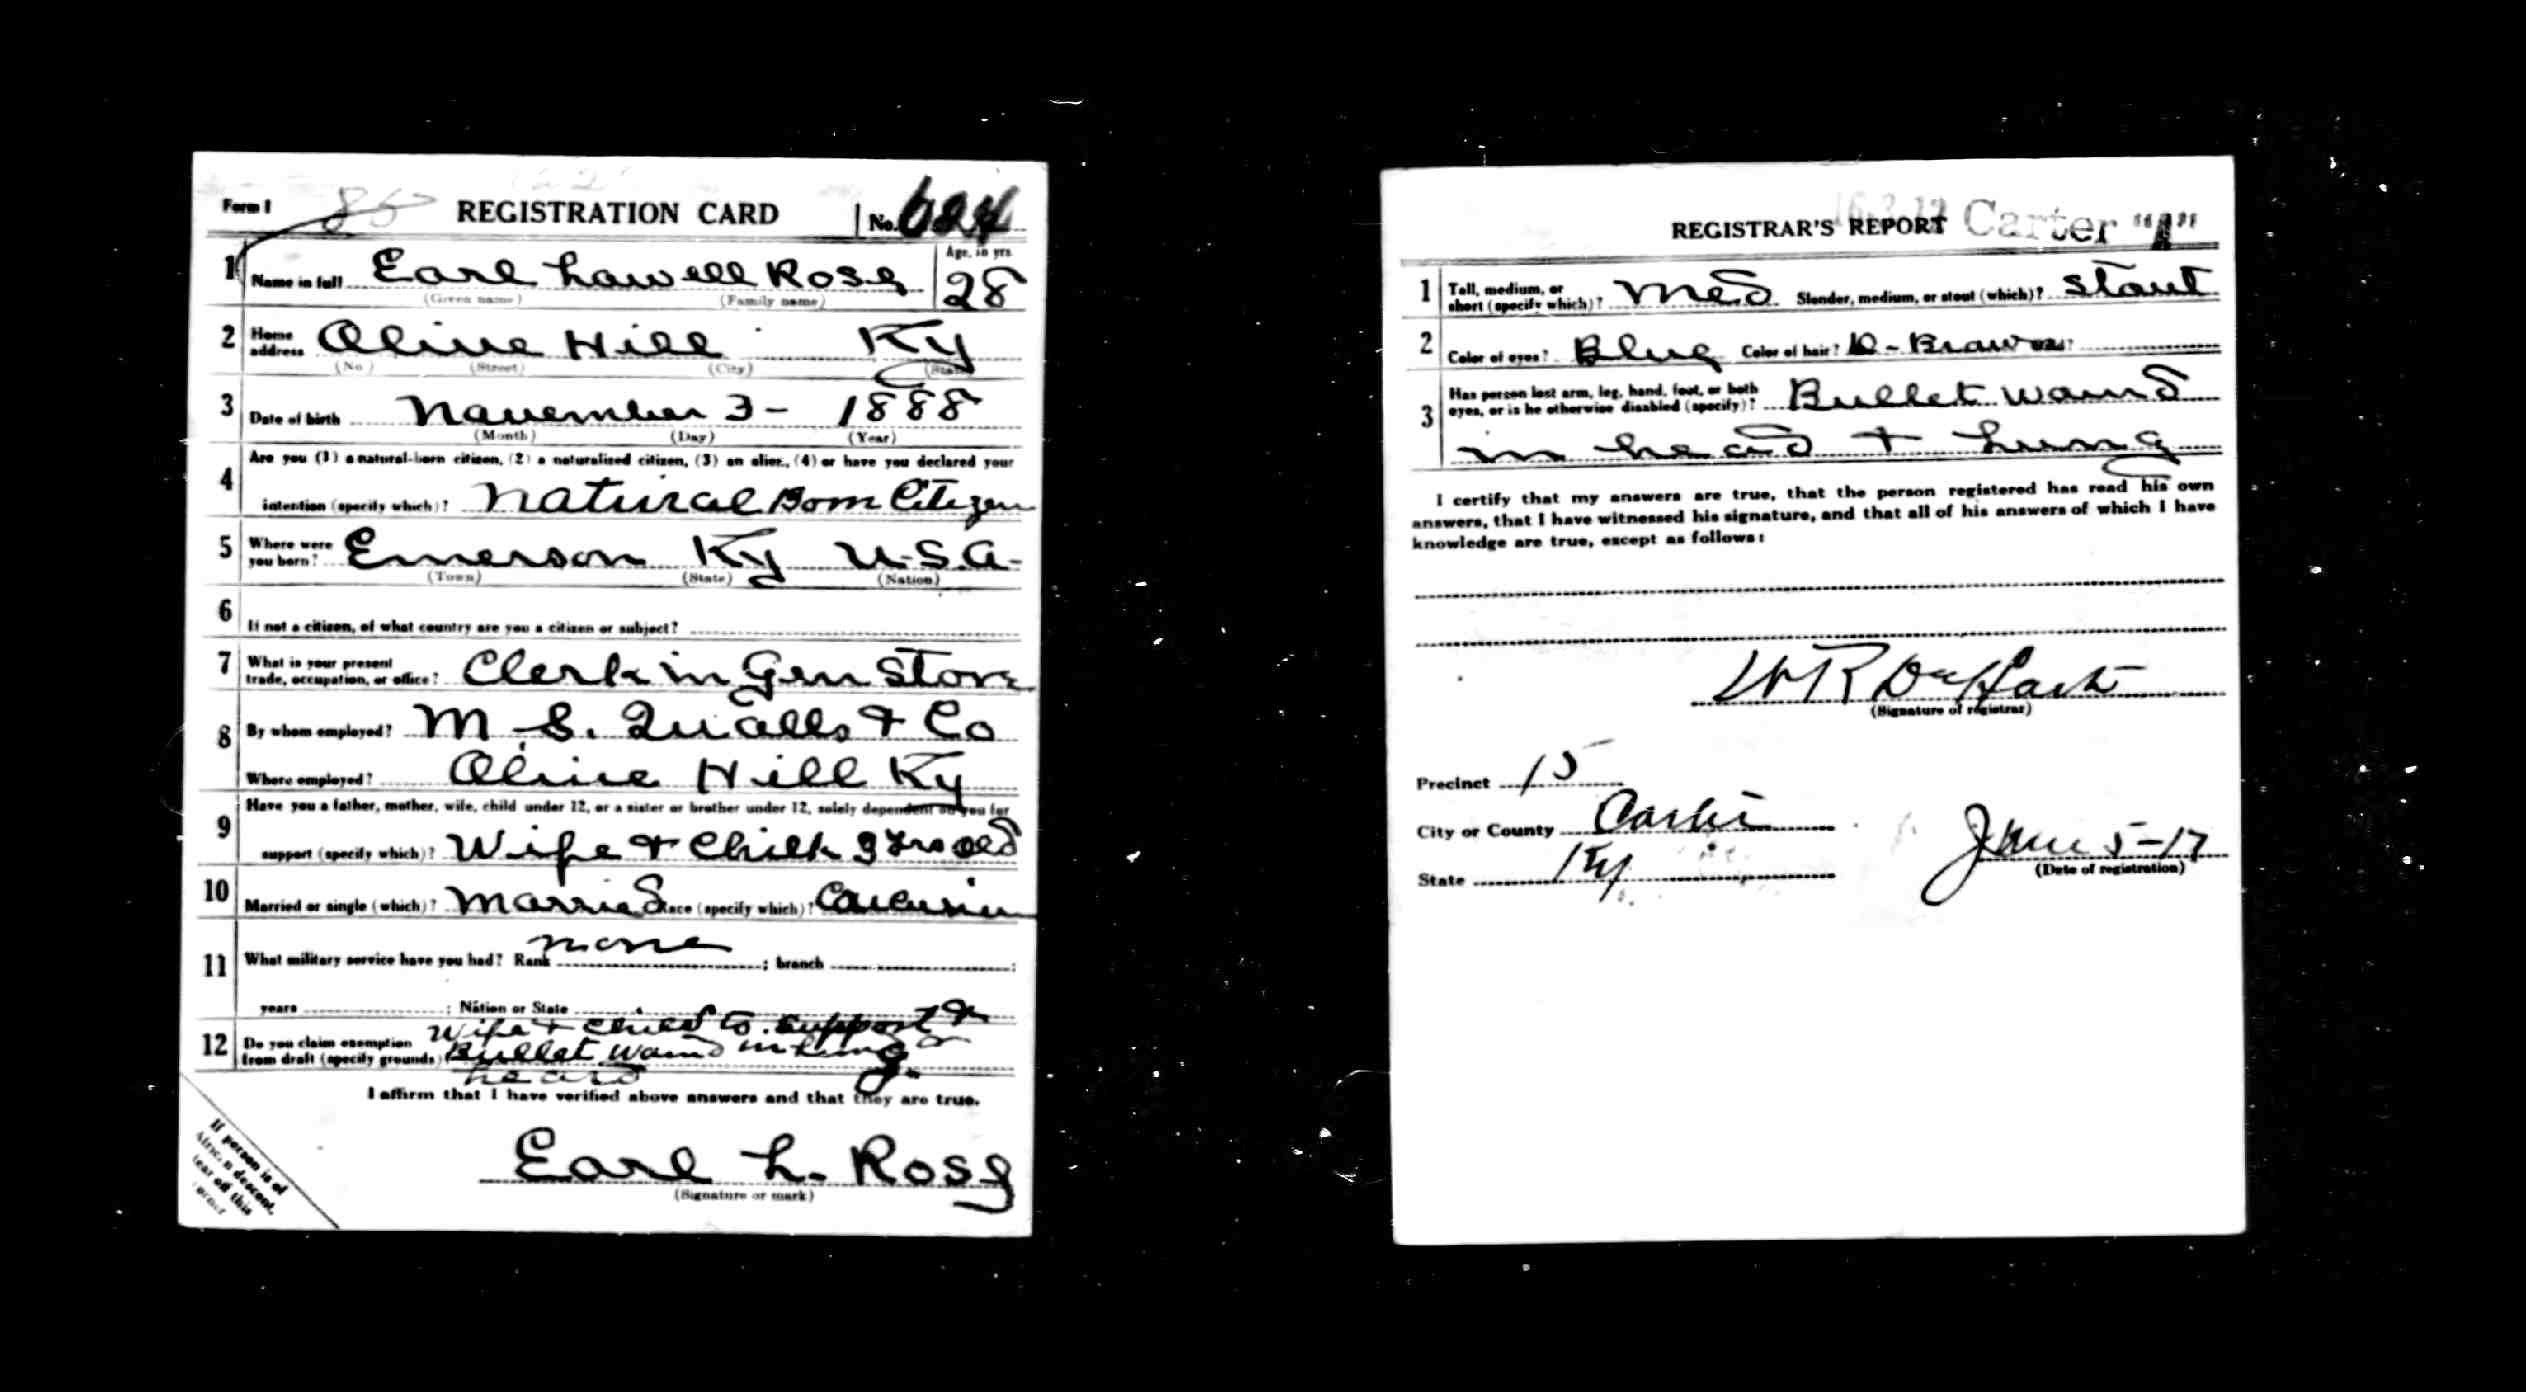 Form 1 85 REGISTRATION CARD No. 624
1 Name in full Earl Lowell Rose Age, in yrs 28
(Given name) (Family name)
2 Home address Olive Hill Ky
(No.) (Street) (City) (State)
3 Date of birth November 3 - 1888
(Month) (Day) (Year)
4 Are you (1) a natural-born citizen, (2) a naturalized citizen, (3) an alien, (4) or have you declared your
intention (specify which)? Natural Born Citizen
5 Where were you born? Emerson Ky U.S.A.
(Town) (State) (Nation)
6 If not a citizen, of what country are you a citizen or subject?
7 What is your present trade, occupation, or office? Clerk in Gen Store
8 By whom employed? M. S. Qualls & Co
Where employed? Olive Hill Ky
9 Have you a father, mother, wife, child under 12, or a sister or brother under 12, solely dependent on you for
support (specify which)? Wife & Child 9 yrs old
10 Married or single (which)? Married Race (specify which)? Caucasian
11 What military service have you had? Rank none ; branch ;
years ; Nation or State
12 Do you claim exemption from draft (specify grounds)? Wife & child to support &
Bullet wound in Lung &
head
I affirm that I have verified above answers and that they are true.
Earl L. Rose
(Signature or mark)
If person is of
African descent,
tear off this
corner
REGISTRAR'S REPORT Carter "1"
1 Tall, medium, or short (specify which)? Med Slender, medium, or stout (which)? Stout
2 Color of eyes? Blue Color of hair? D-Brown Bald?
3 Has person lost arm, leg, hand, foot, or both eyes, or is he otherwise disabled (specify)? Bullet wound
in head & Lung
I certify that my answers are true, that the person registered has read his own
answers, that I have witnessed his signature, and that all of his answers of which I have
knowledge are true, except as follows:
W R
(Signature of registrar)
Precinct 15
City or County Carter
State Ky
June 5-17
(Date of registration)